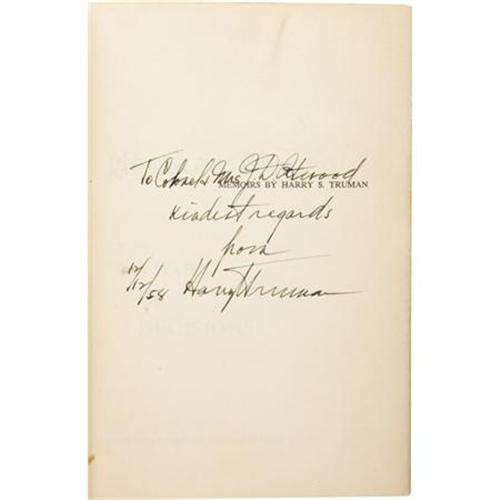 To Colonel & Mrs. J. D. Atwood
MEMOIRS BY HARRY S. TRUMAN
Kindest regards
from
12/12/58 Harry S Truman